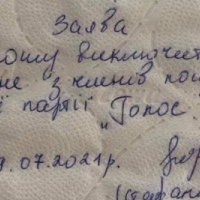 Заява
ошу виключит
не з членів пол
ї партії "Голос
.07.2021р.